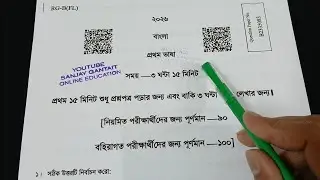 RG-B(FL)
২০২৬
বাংলা
প্রথম ভাষা
YOUTUBE
SANJAY GANTAIT
ONLINE EDUCATION
সময় — ৩ ঘন্টা ১৫ মিনিট
প্রথম ১৫ মিনিট শুধু প্রশ্নপত্র পড়ার জন্য এবং বাকি ৩ ঘন্টা লেখার জন্য।
[নিয়মিত পরীক্ষার্থীদের জন্য পূর্ণমান —৯০
বহিরাগত পরীক্ষার্থীদের জন্য পূর্ণমান —১০০]
১। সঠিক উত্তরটি নির্বাচন করো: